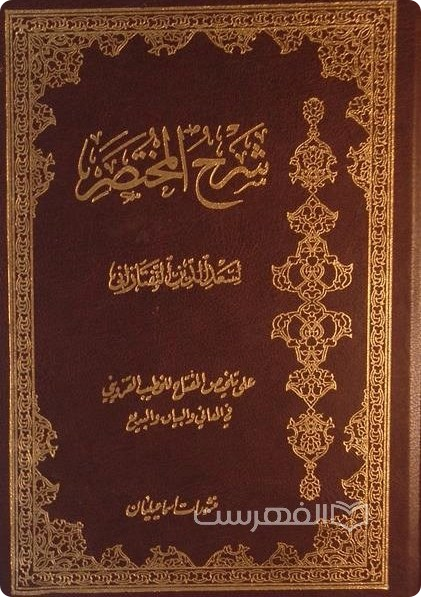 شرح المختصر
لسعد الدين التفتازاني
على تلخيص المفتاح للخطيب القزويني
في المعاني والبيان والبديع
منشورات اسماعيليان
الفهرست